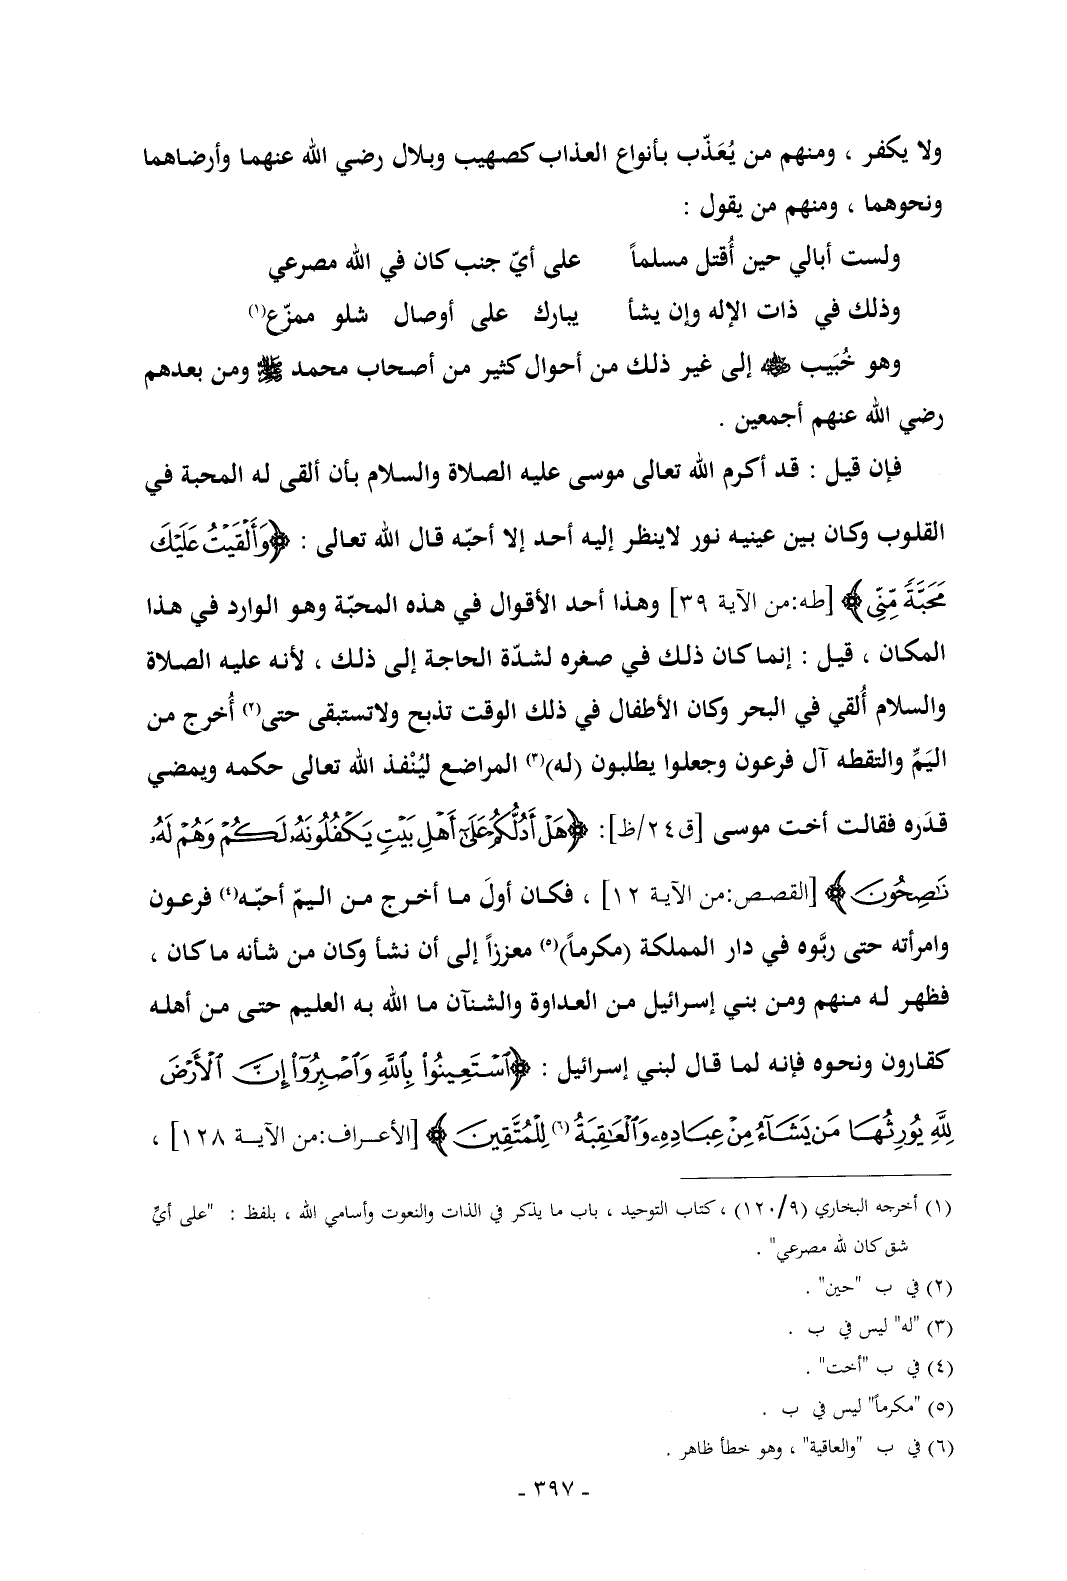 ولا يكفر ، ومنهم من يُعَذّب بأنواع العذاب كصهيب وبلال رضي الله عنهما وأرضاهما
ونحوهما ، ومنهم من يقول :
ولست أبالي حين أُقتل مسلماً على أيّ جنب كان في الله مصرعي
وذلك في ذات الإله وإن يشأ يبارك على أوصال شلو ممزّع(١)
وهو خُبَيب رضي الله عنه إلى غير ذلك من أحوال كثير من أصحاب محمد ﷺ ومن بعدهم
رضي الله عنهم أجمعين .
فإن قيل : قد أكرم الله تعالى موسى عليه الصلاة والسلام بأن ألقى له المحبة في
القلوب وكان بين عينيه نور لاينظر إليه أحد إلا أحبّه قال الله تعالى : ﴿وَأَلْقَيْتُ عَلَيْكَ
مَحَبَّةً مِّنِّي﴾ [طه:من الآية ٣٩] وهذا أحد الأقوال في هذه المحبّة وهو الوارد في هذا
المكان ، قيل : إنما كان ذلك في صغره لشدّة الحاجة إلى ذلك ، لأنه عليه الصلاة
والسلام أُلقي في البحر وكان الأطفال في ذلك الوقت تذبح ولاتستبقى حتى(٢) أُخرج من
اليَمِّ والتقطه آل فرعون وجعلوا يطلبون (له)(٣) المراضع ليُنْفذ الله تعالى حكمه ويمضي
قدَره فقالت أخت موسى [ق٢٤/ظ]: ﴿هَلْ أَدُلُّكُمْ عَلَىٰٓ أَهْلِ بَيْتٍ يَكْفُلُونَهُۥ لَكُمْ وَهُمْ لَهُۥ
نَٰصِحُونَ﴾ [القصص:من الآية ١٢] ، فكان أولَ ما أخرج من اليمّ أحبّه(٤) فرعون
وامرأته حتى ربَّوه في دار المملكة (مكرماً)(٥) معززاً إلى أن نشأ وكان من شأنه ما كان ،
فظهر له منهم ومن بني إسرائيل من العداوة والشنآن ما الله به العليم حتى من أهله
كقارون ونحوه فإنه لما قال لبني إسرائيل : ﴿ٱسْتَعِينُوا۟ بِٱللَّهِ وَٱصْبِرُوٓا۟ إِنَّ ٱلْأَرْضَ
لِلَّهِ يُورِثُهَا مَن يَشَآءُ مِنْ عِبَادِهِۦ وَٱلْعَٰقِبَةُ(٦) لِلْمُتَّقِينَ﴾ [الأعراف:من الآية ١٢٨] ،
(١) أخرجه البخاري (١٢٠/٩) ، كتاب التوحيد ، باب ما يذكر في الذات والنعوت وأسامي الله ، بلفظ : "على أيِّ
شق كان لله مصرعي" .
(٢) في ب "حين" .
(٣) "له" ليس في ب .
(٤) في ب "أخت" .
(٥) "مكرماً" ليس في ب .
(٦) في ب "والعاقية" ، وهو خطأ ظاهر .
- ٣٩٧ -